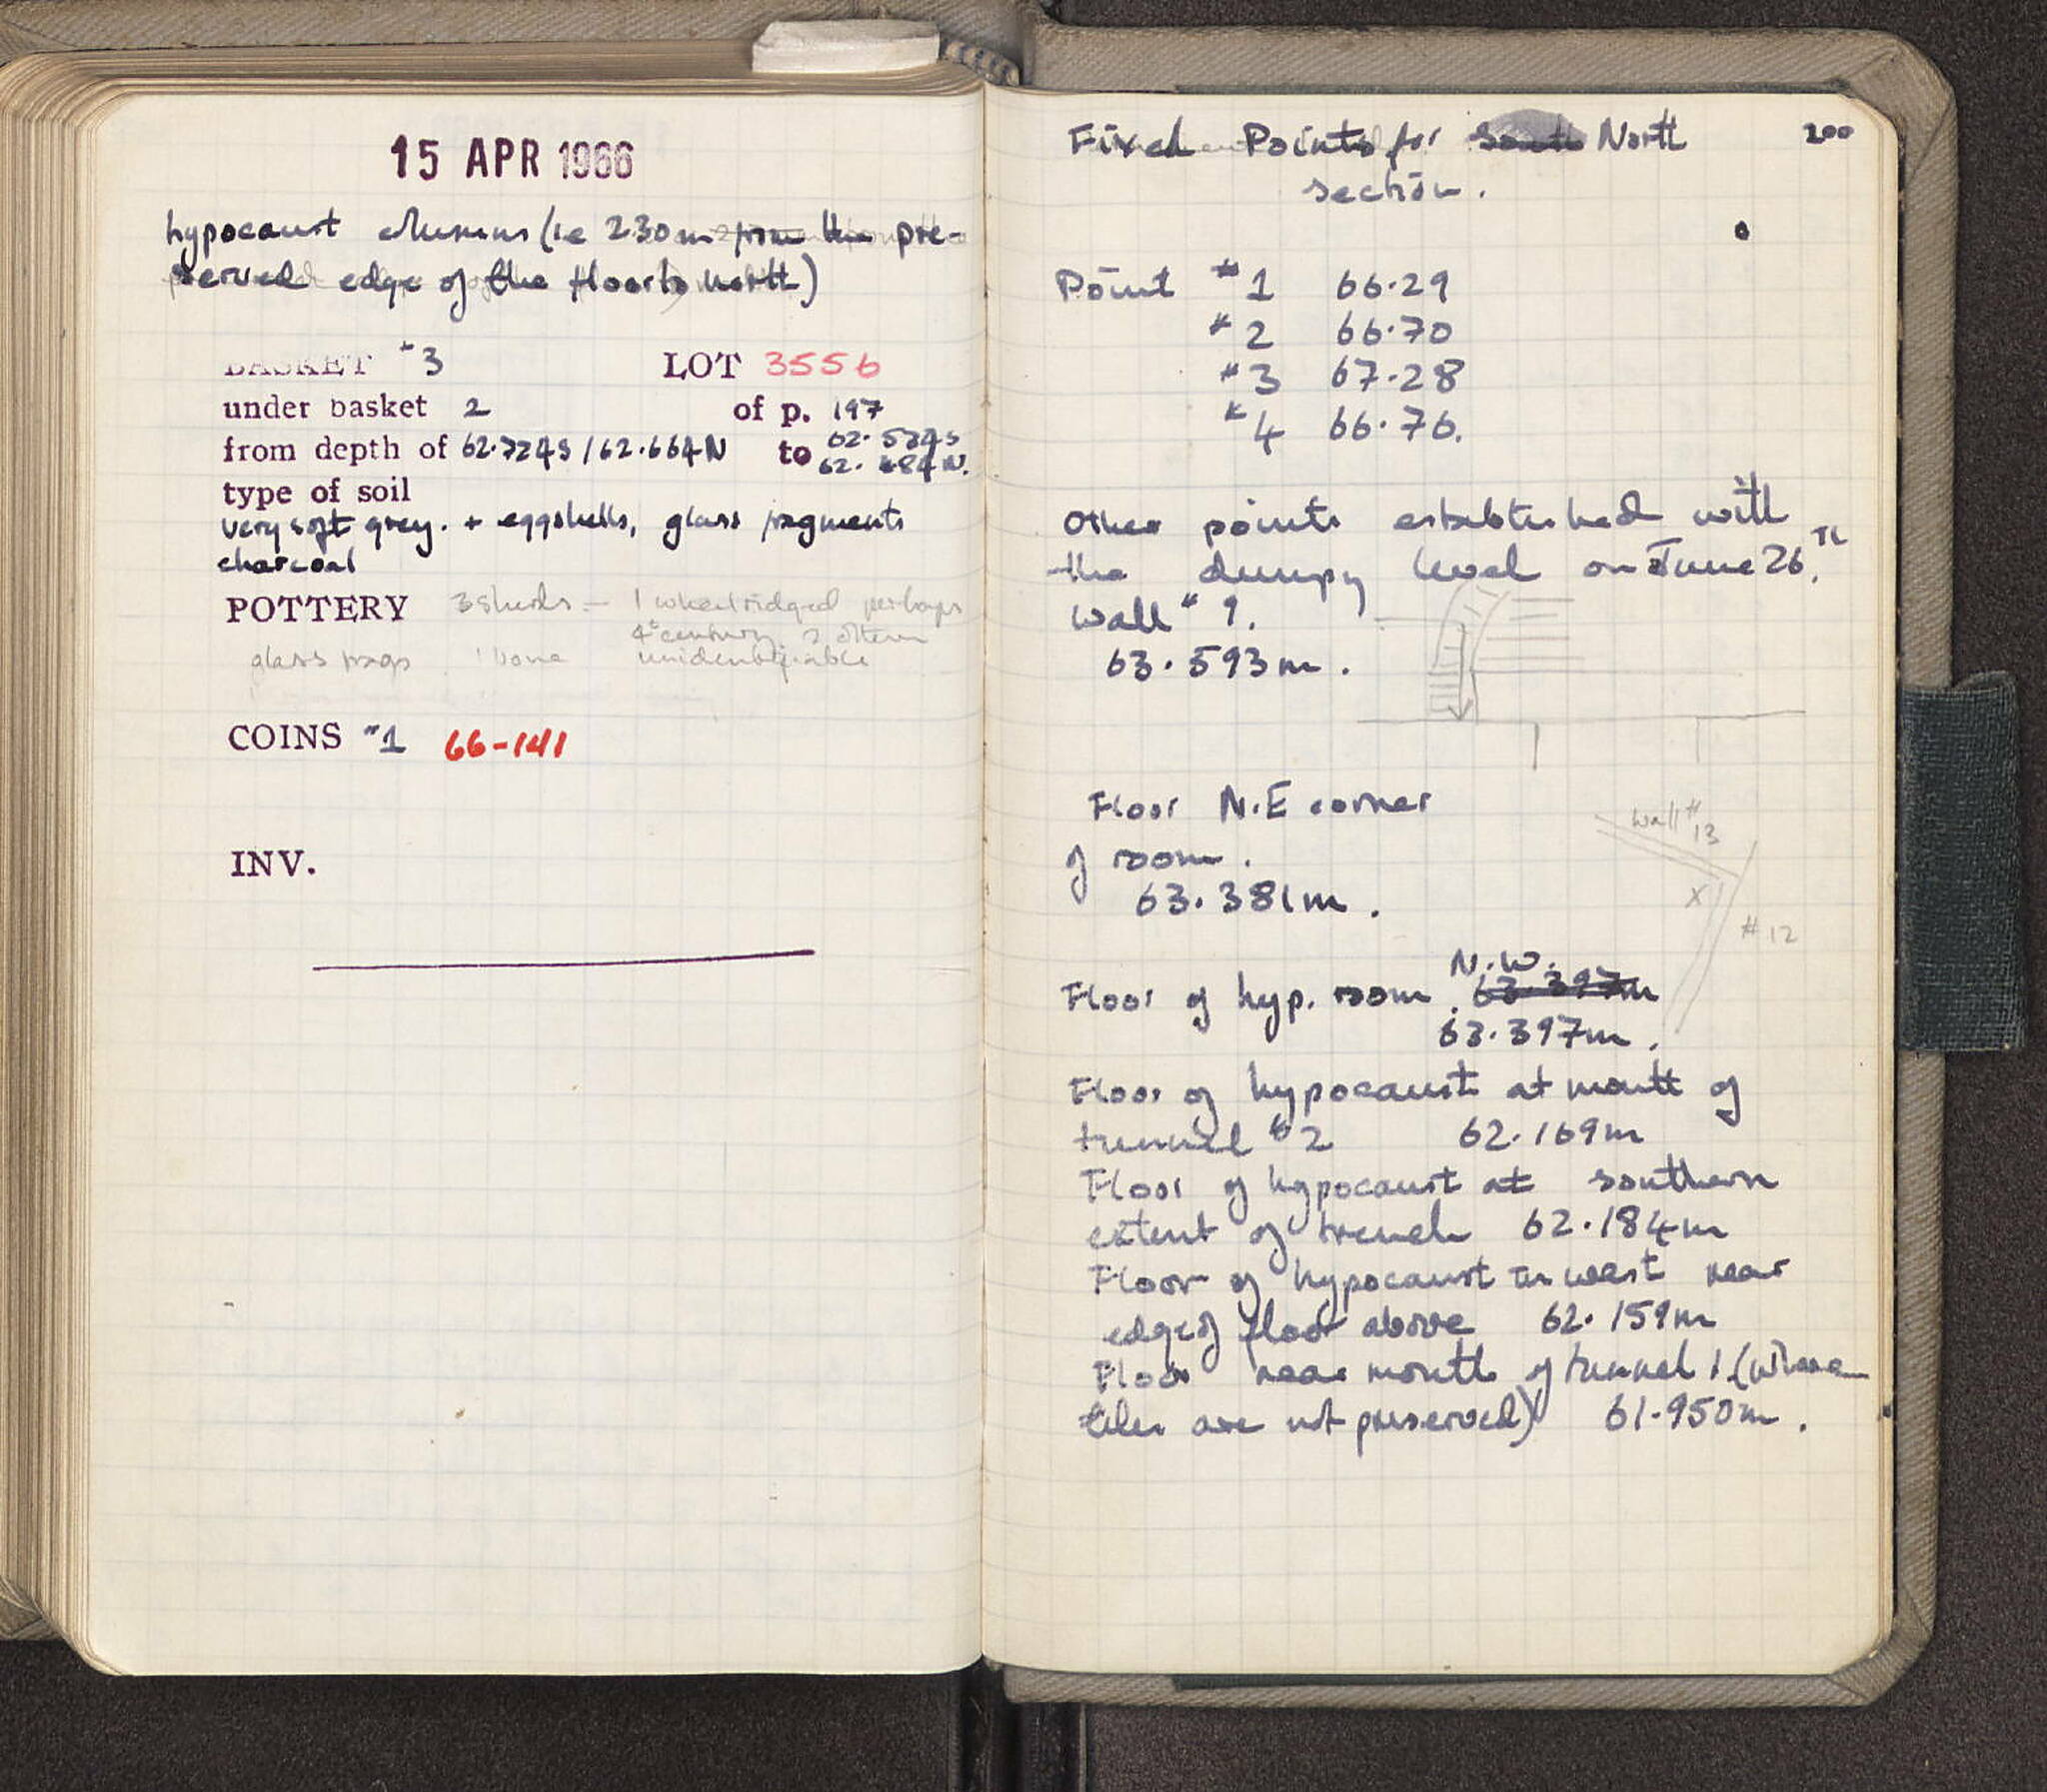 15 APR 1966
hypocaust columns (ie 2.30m from the pre-
served edge of the floor to north)
BASKET #3 LOT 3556
under basket 2 of p. 197
from depth of 62.724S / 62.664N to 62.524S
62.484N.
type of soil
very soft grey. + eggshells, glass fragments
charcoal
POTTERY 3 sherds – 1 wheelridged perhaps
4th century, 2 others
glass frags 1 bone unidentifiable
COINS #1 66-141
INV.
200
Fixed Points for South North
section.
Point #1 66.29
#2 66.70
#3 67.28
#4 66.76.
Other points established with
the dumpy level on June 26th.
Wall # 9.
63.593m.
Floor N.E corner
of room.
63.381m.
Wall # 13
X
# 12
N.W.
Floor of hyp. room. 63.397m
63.397m.
Floor of hypocaust at mouth of
tunnel #2 62.169m
Floor of hypocaust at southern
extent of trench 62.184m
Floor of hypocaust in west near
edge of floor above 62.159m
Floor near mouth of tunnel 1 (where
tiles are not preserved) 61.950m.